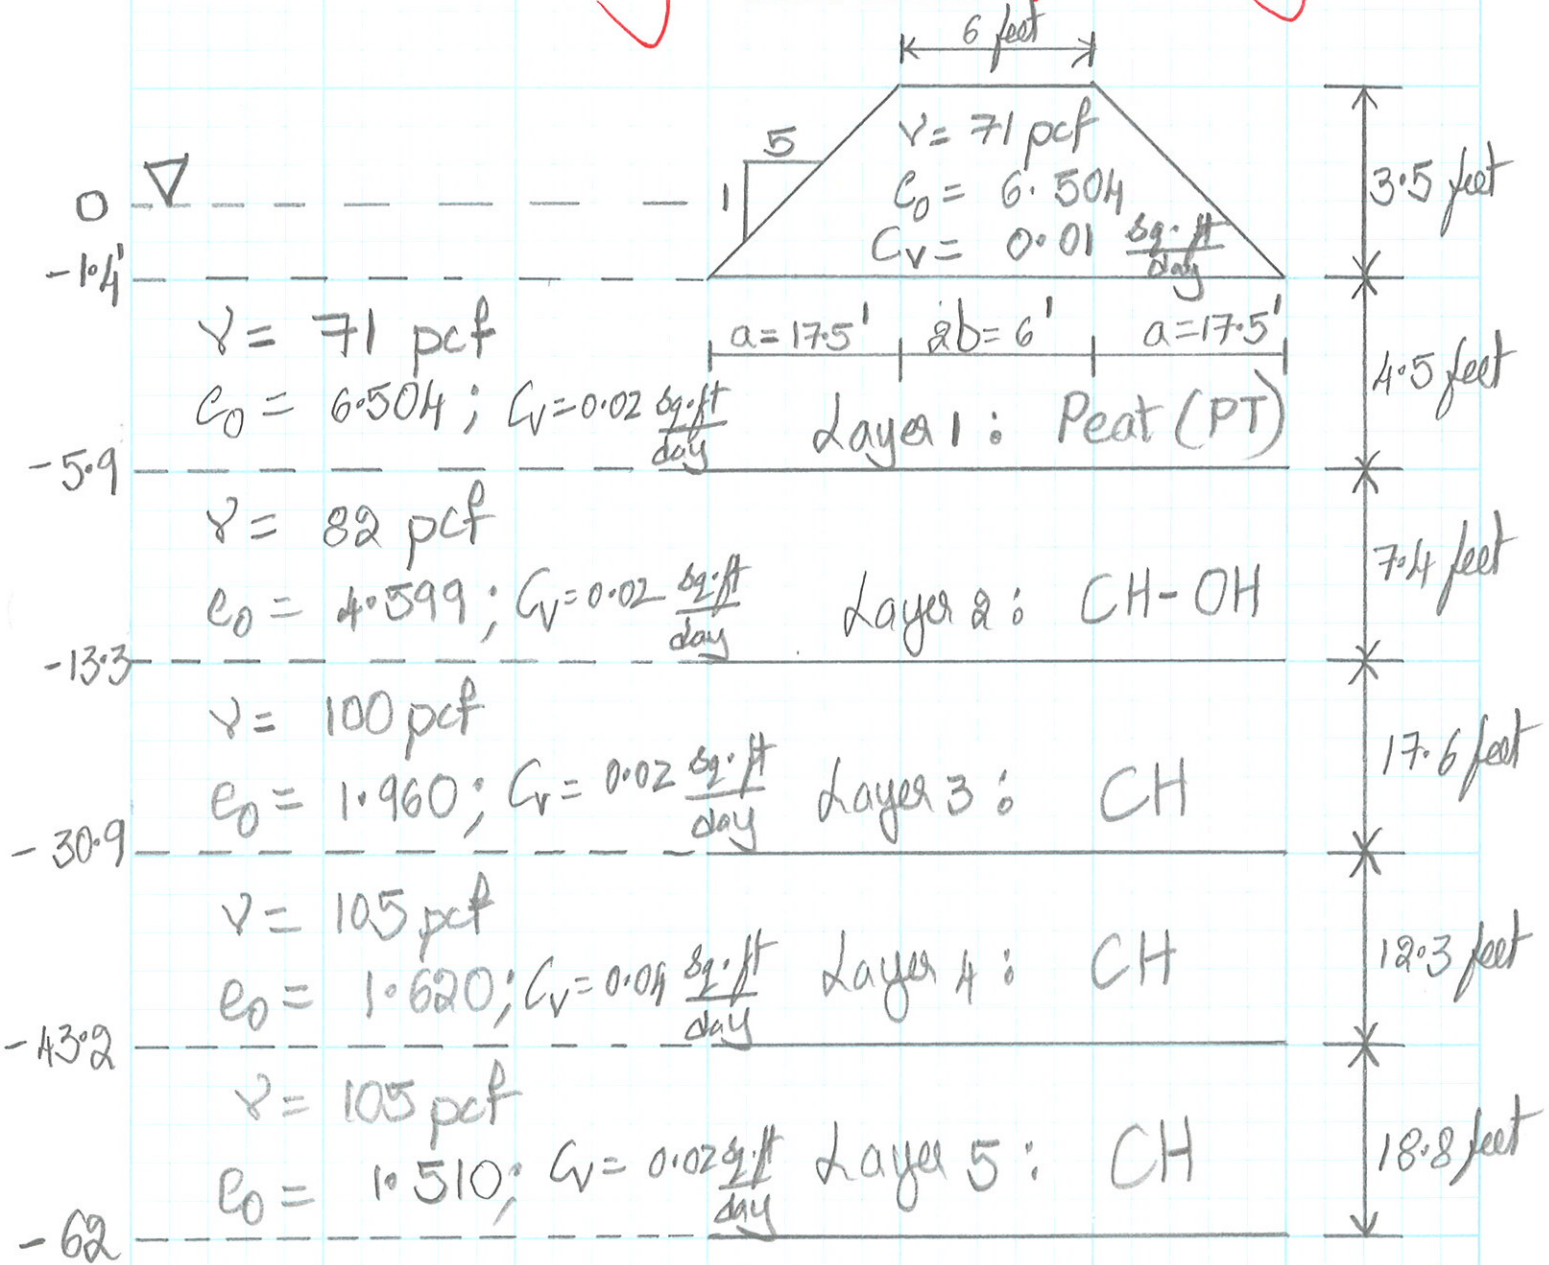 6 feet
γ = 71 pcf
e₀ = 6.504
Cv = 0.01 sq.ft/day
5
1
3.5 feet
0
-1.4'
a = 17.5'
2b = 6'
a = 17.5'
γ = 71 pcf
e₀ = 6.504; Cv = 0.02 sq.ft/day
Layer 1: Peat (PT)
4.5 feet
-5.9
γ = 82 pcf
e₀ = 4.599; Cv = 0.02 sq.ft/day
Layer 2: CH-OH
7.4 feet
-13.3
γ = 100 pcf
e₀ = 1.960; Cv = 0.02 sq.ft/day
Layer 3: CH
17.6 feet
-30.9
γ = 105 pcf
e₀ = 1.620; Cv = 0.04 sq.ft/day
Layer 4: CH
12.3 feet
-43.2
γ = 105 pcf
e₀ = 1.510; Cv = 0.02 sq.ft/day
Layer 5: CH
18.8 feet
-62